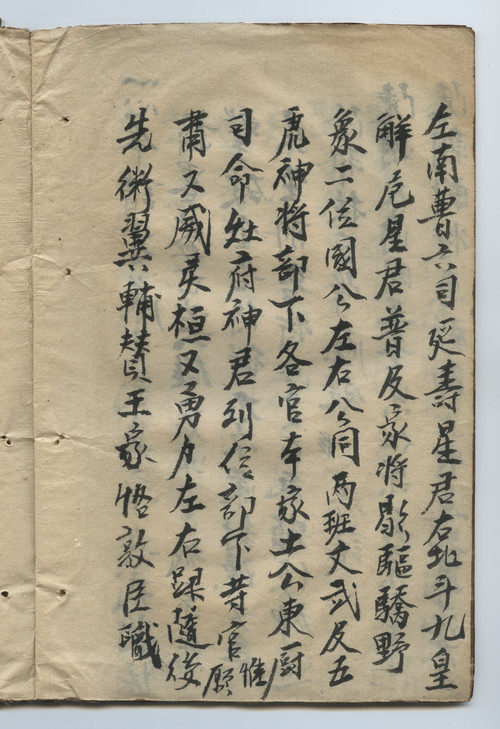 左南曹六司延壽星君右北斗九皇
解厄星君普及家將歇驅驕野
象二位國公左右公同两班文武及五
虎神将部下各官本家土公東厨
司命灶府神君列位部下等官惟願
肅又威灵桓又勇力左右跟隨後
先術翼輔賛王家恪敦臣職